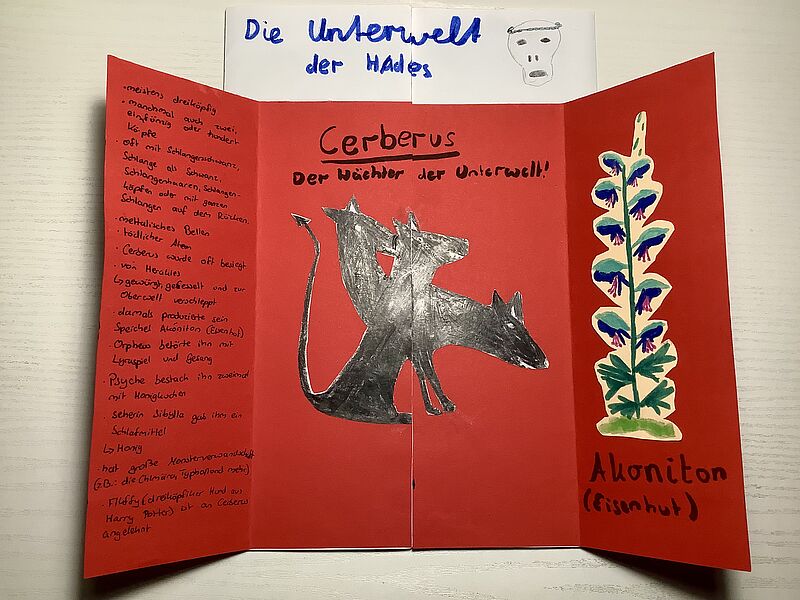 Die Unterwelt
der HAdes
· meistens dreiköpfig
· manchmal auch zwei,
einförmig oder hundert
Köpfe
· oft mit Schlangenschwanz,
Schlange als Schwanz,
Schlangenhaaren, Schlangen-
köpfen oder mit ganzen
Schlangen auf dem Rücken.
· mettalisches Bellen
· tödlicher Atem
· Cerberus wurde oft besiegt
· von Herakles
↳ gewürgt, gefesselt und zur
Oberwelt verschleppt
· damals produzierte sein
Speichel Akoniton (Eisenhut)
· Orpheus betörte ihn mit
Lyraspiel und Gesang
· Psyche bestach ihn zweimal
mit Honigkuchen
· seherin Sibylla gab ihm ein
Schlafmittel
↳ Honig
· hat große Monsterverwandschaft
(z.B.: die Chimära, Typhon und mehr)
· Fluffy (dreiköpfiger Hund aus
Harry Potter) ist an Cerberus
angelehnt
Cerberus
Der Wächter der Unterwelt!
Akoniton
(Eisenhut)